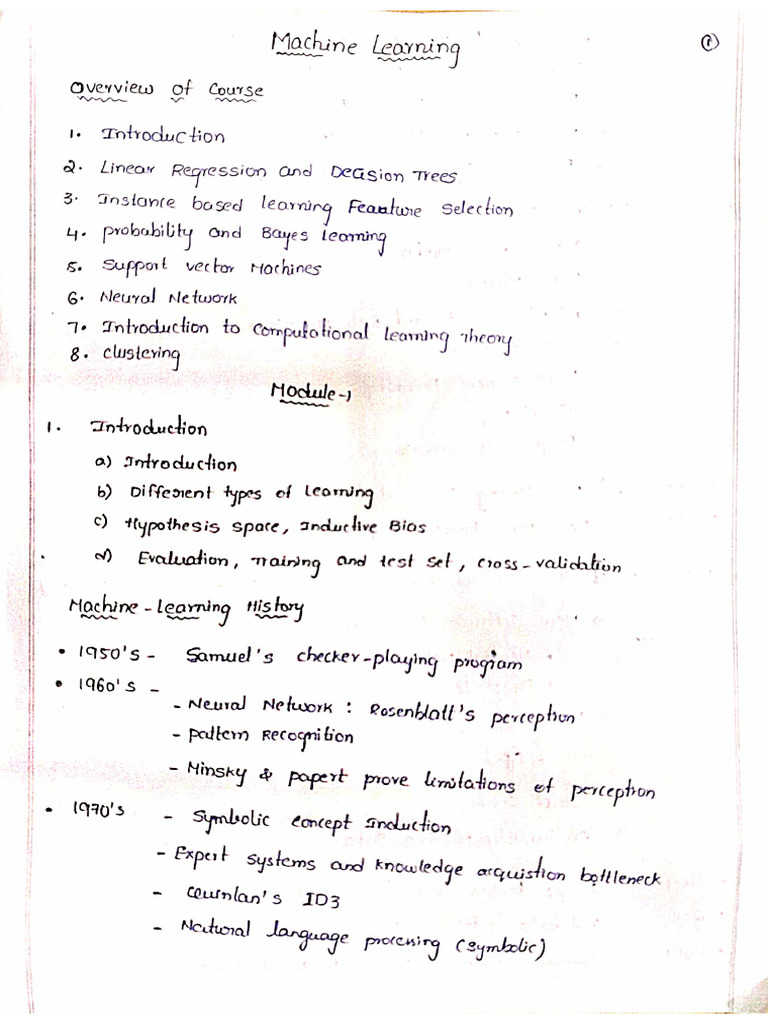 Machine Learning
①
Overview of Course
1. Introduction
2. Linear Regression and Decision Trees
3. Instance based learning Feauture Selection
4. probability and Bayes learning
5. Support vector Machines
6. Neural Network
7. Introduction to Computational learning Theory
8. clustering
Module-1
1. Introduction
a) Introduction
b) Different types of learning
c) Hypothesis space, Inductive Bias
d) Evaluation, Training and test set, cross-validation
Machine-Learning History
• 1950's - Samuel's checker-playing program
• 1960's -
- Neural Network : Rosenblatt's perception
- pattern Recognition
- Minsky & papert prove limitations of perception
• 1970's - Symbolic concept Induction
- Expert systems and knowledge acquistion bottleneck
- ID3
- Natural language processing (symbolic)